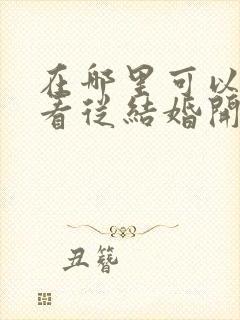 在哪里可以
看從結婚開
丑簪